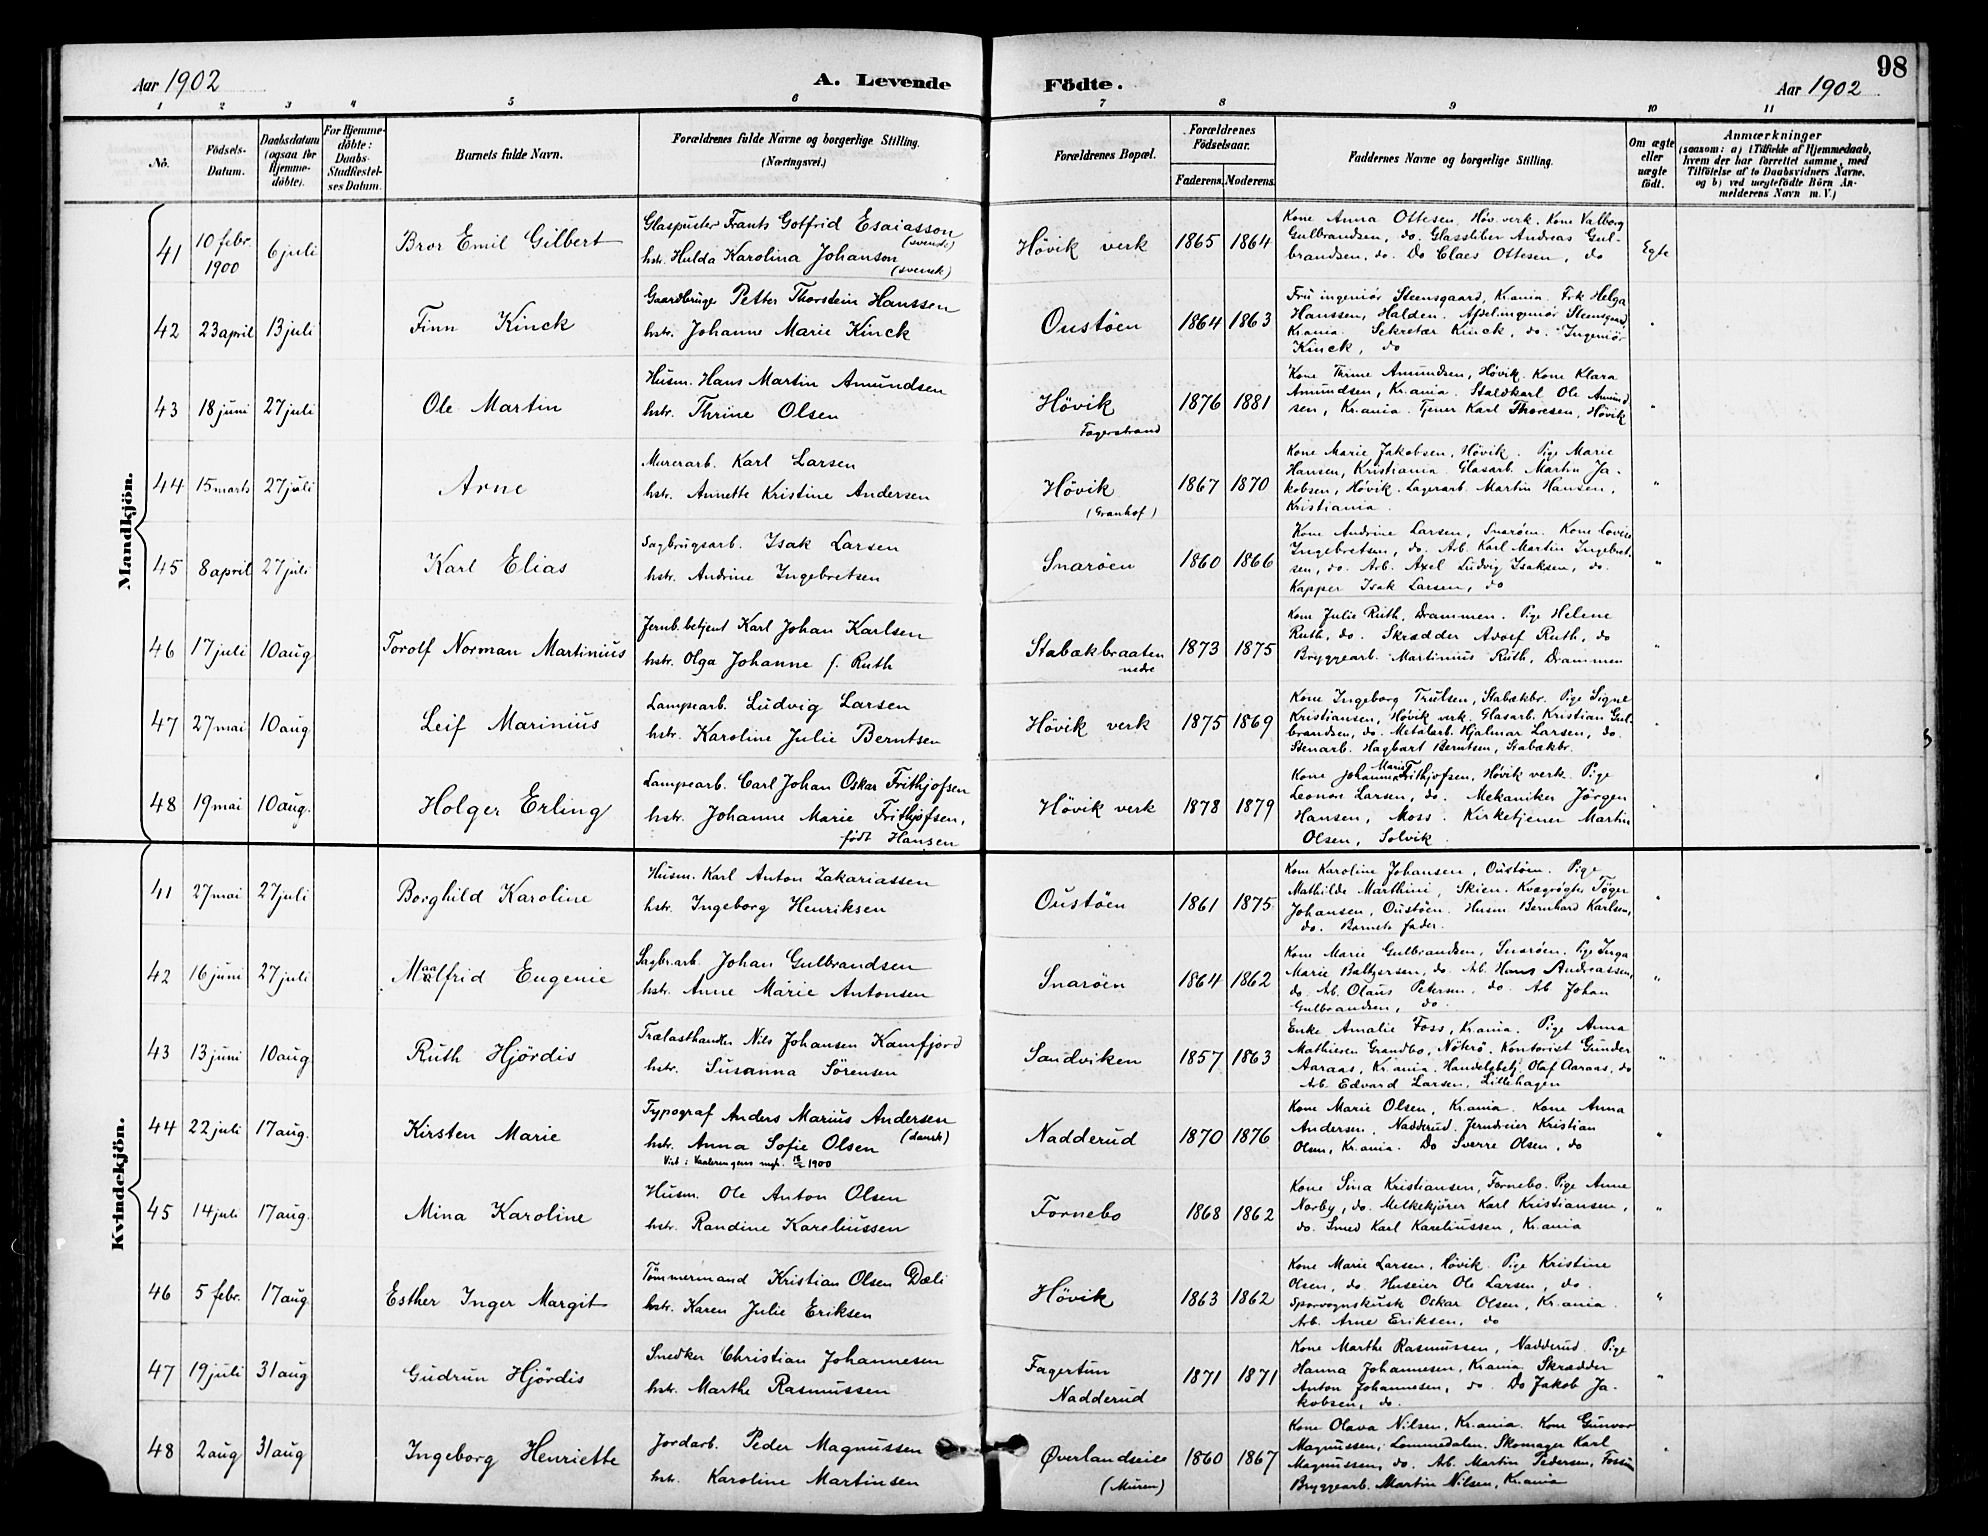 Aar 1902
A. Levende
Födte.
98
Aar 1902
1 2 3 4 5 6 7 8 9 10 11
No.
Födsels-
Datum.
Daabsdatum
(ogsaa for
Hjemme-
döbte).
For Hjemme-
döbte:
Daabs-
Stadfæstel-
ses Datum.
Barnets fulde Navn.
Forældrenes fulde Navne og borgerlige Stilling.
(Næringsvei.)
Forældrenes Bopæl.
Forældrenes
Födselsaar.
Faderens. Moderens.
Faddernes Navne og borgerlige Stilling.
Om ægte
eller
uægte
födt.
Anmærkninger
(saasom: a) i Tilfælde af Hjemmedaab,
hvem der har forrettet samme, med
Tilföielse af to Daabsvidners Navne.
og b) ved uægtefödte Börn An-
melderens Navn m. V.)
Mandkjön.
41
10 febr.
1900
6 juli
Bror Emil Gilbert
Glaspuster Frants Gotfrid Esaiasson
(svensk)
hstr. Hulda Karolina Johanson
(svensk)
Hövik verk
1865 1864
Kone Anna Ottesen, Höv. verk. Kone Valborg
Gulbrandsen, do. Glassliber Andreas Gul-
brandsen, do. Do Claes Ottesen, do
Egte
42
23 april
13 juli
Finn Kinck
Gaardbruger Petter Thorstein Hanssen
hstr. Johanne Marie Kinck
Oustöen
1864 1863
Fru ingeniör Steensgaard, Kr.ania. Frk Helga
Hanssen, Halden. Afdel.ingeniör Steensgaard,
Kr.ania. Sekretær Kinck, do. Ingeniör
Kinck, do
"
43
18 juni
27 juli
Ole Martin
Husm. Hans Martin Amundsen
hstr. Thrine Olsen
Hövik
Fagerstrand
1876 1881
Kone Thrine Amundsen, Hövik. Kone Klara
Amundsen, Kr.ania. Staldkarl Ole Amund
sen, Kr.ania. Tjener Karl Thoresen, Hövik
"
44
15 marts
27 juli
Arne
Murerarb. Karl Larsen
hstr. Annette Kristine Andersen
Hövik
(Granhof)
1867 1870
Kone Marie Jakobsen, Hövik. Pige Marie
Hansen, Kristiania. Glasarb. Martin Ja-
kobsen, Hövik. Lagerarb. Martin Hansen,
Kristiania.
"
45
8 april
27 juli
Karl Elias
Sagbrugsarb. Isak Larsen
hstr. Andrine Ingebretsen
Snaröen
1860 1866
Kone Andrine Larsen, Snaröen. Kone Lovise
Ingebretsen, do. Arb. Karl Martin Ingebret
sen, do. Arb. Axel Ludvig Isaksen, do.
Kapper Isak Larsen, do
"
46
17 juli
10 aug
Torolf Norman Martinius
Jernb.betjent Karl Johan Karlsen
hstr. Olga Johanne f. Ruth
Stabækbraaten
nedre
1873 1875
Kone Julie Ruth, Drammen. Pige Helene
Ruth, do. Skrædder Adolf Ruth, do
Bryggearb. Martinius Ruth, Drammen
"
47
27 mai
10 aug
Leif Marinius
Lampearb. Ludvig Larsen
hstr. Karoline Julie Berntsen
Hövik verk
1875 1869
Kone Ingeborg Trulsen, Stabækbr. Pige Signe
Kristiansen, Hövik verk. Glasarb. Kristian Gul-
brandsen, do. Metalarb. Hjalmar Larsen, do.
Stenarb. Hagbart Berntsen, Stabækbr.
"
48
19 mai
10 aug.
Holger Erling
Lampearb. Carl Johan Oskar Frithjofsen
hstr. Johanne Marie Frithjofsen,
født Hansen
Hövik verk
1878 1879
Marie
Kone Johanne Frithjofsen, Hövik verk. Pige
Leonore Larsen, do. Mekaniker Jörgen
Hansen, Moss. Kirketjener Martin
Olsen, Solvik.
"
Kvindekjön.
41
27 mai
27 juli
Borghild Karoline
Husm. Karl Anton Zakariassen
hstr. Ingeborg Henriksen
Oustöen
1861 1875
Kone Karoline Johansen, Oustöen. Pige
Mathilde Marthini, Skien. Kvægrögter Töger
Johansen, Oustöen. Husm Bernhard Karlsen,
do. Barnets fader.
"
42
16 juni
27 juli
Maalfrid Eugenie
Sagbr.arb. Johan Gulbrandsen
hstr. Anne Marie Antonsen
Snaröen
1864 1862
Kone Marie Gulbrandsen, Snaröen. Pige Inga
Marie Baltzersen, do. Arb. Hans Andreassen,
do. Arb. Olaus Petersen, do. Ab Johan
Gulbrandsen, do.
"
43
13 juni
10 aug
Ruth Hjördis
Trælasthandler Nils Johansen Kamfjord
hstr. Susanna Sörensen
Sandviken
1857 1863
Enke Amalie Foss, Kr.ania. Pige Anna
Mathiesen Grandbo, Nöterö. Kontorist Gunder
Aaraas, Kr.ania. Handelsbetj. Olaf Aaraas, do
Arb. Edvard Larsen, Lillehagen
"
44
22 juli
17 aug.
Kirsten Marie
Typograf Anders Marius Andersen
(dansk)
hstr. Anna Sofie Olsen
Nadderud
1870 1876
Kone Marie Olsen, Kr.ania. Kone Anna
Andersen, Nadderud. Jerndreier Kristian
Olsen, Kr.ania. Do Sverre Olsen, do
"
45
14 juli
17 aug.
Mina Karoline
Husm. Ole Anton Olsen
hstr. Randine Kareliussen
Fornebo
1868 1862
Kone Sina Kristiansen, Fornebo. Pige Anne
Norby, do. Melkekjörer Karl Kristiansen,
do. Smed Karl Kareliussen, Kr.ania
"
46
5 febr.
17 aug.
Esther Inger Margit
Tömmermand Kristian Olsen Dæli
hstr. Karen Julie Eriksen
Hövik
1863 1862
Kone Marie Larsen, Hövik. Pige Kristine
Olsen, do. Huseier Ole Larsen, do.
Sporvognskusk Oskar Olsen, Kr.ania.
Arb. Arne Eriksen, do
"
47
19 juli
31 aug
Gudrun Hjördis
Snedker Christian Johannesen
hstr. Marthe Rasmussen
Fagertun
Nadderud
1871 1871
Kone Marthe Rasmussen, Nadderud. Pige
Hanna Johannesen, Kr.ania. Skrædder
Anton Johannesen, do. Do Jakob Ja-
kobsen, do.
"
48
2 aug
31 aug
Ingeborg Henriette
Jordarb. Peder Magnussen
hstr. Karoline Martinsen
Øverlandseie
(Muren)
1860 1867
Kone Olava Nilsen, Kr.ania. Kone Gunvor
Magnussen, Lommedalen. Skomager Karl
Magnussen, do. Ab. Martin Pedersen, Fossum
Bryggearb. Martin Nilsen, Kr.ania
"